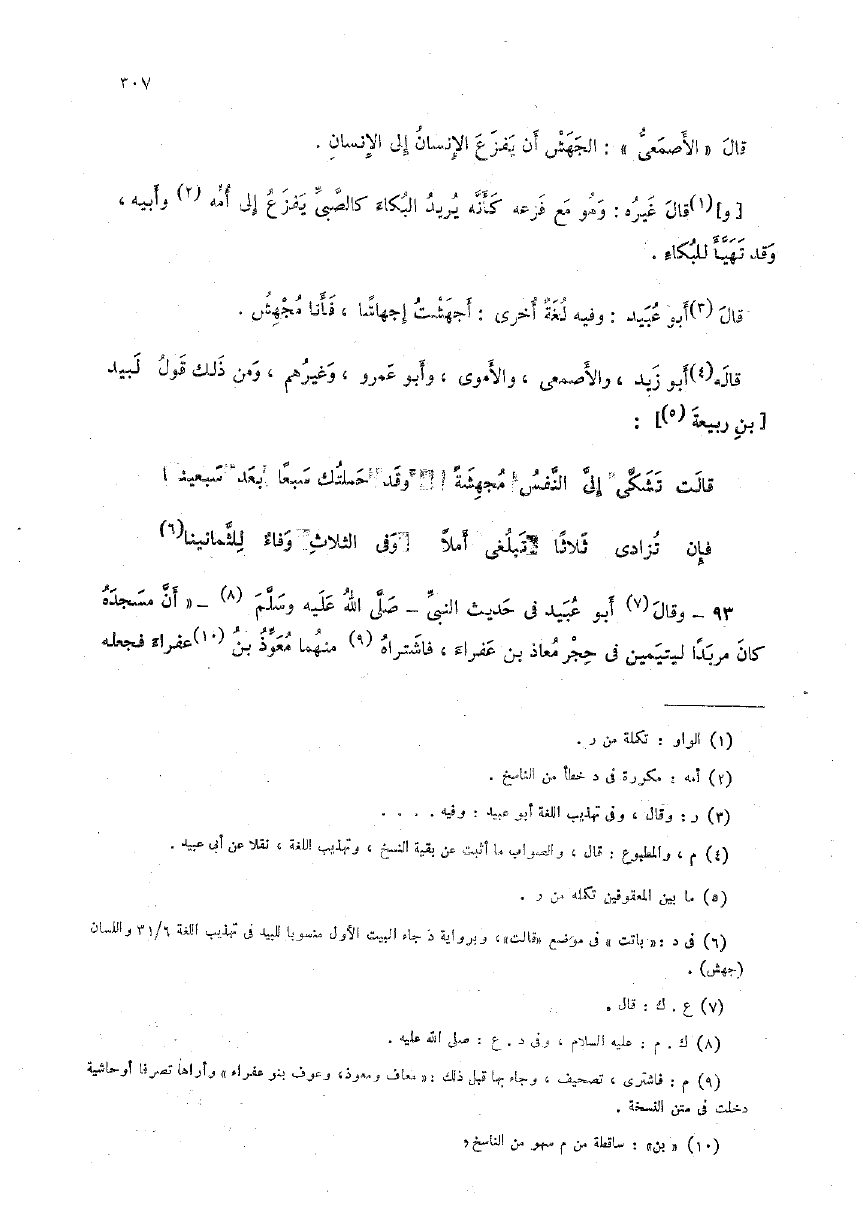 ٣٠٧
قالَ « الأَصمَعىُّ » : الجَهَشْ أَن يَفزَعَ الإِنسانُ إِلى الإِنسانِ .
[ و](١)قالَ غَيرُه : وَهُو مَع فَزعه كَأَنَّه يُريدُ البُكاء كالصَّبىِّ يَفزَعُ إِلى أُمِّه (٢) وأَبيه ،
وَقد تَهَيَّأَ للبُكاءِ .
قالَ (٣)أَبو عُبَيد : وفيه لُغَةٌ أُخرى : أَجهَشْتُ إِجهاشًا ، فَأَنا مُجْهِشٌ .
قالَه(٤)أَبو زَيد ، والأَصمعى ، والأَموى ، وأَبو عَمرو ، وَغيرُهم ، وَمن ذَلك قَولُ لَبيد
[ بنِ ربيعةَ (٥)] :
قالَت تَشَكَّى إِلىَّ النَّفسُ مُجهِشَةً وقَد حَملتُك سَبعًا بَعدَ سَبعينا
فإِن تُزادى ثَلاثًا تَبلُغى أَملاً وَفى الثلاثِ وَفاءٌ لِلثَّمانينا(٦)
٩٣ – وقالَ (٧) أَبو عُبَيد فى حَديث النبىِّ – صَلَّى اللهُ عَلَيه وسَلَّمَ (٨) – « أَنَّ مَسجدَهُ
كانَ مربَدًا ليتيَمين فى حِجْر مُعاذ بن عَفراءَ ، فاشَتراهُ (٩) منهُما مُعَوِّذُ بنُ (١٠)عفراءَ فجعله
(١) الواو : تكلة من ر .
(٢) أمه : مكررة فى د خطأ من الناسخ .
(٣) ر : وقال ، وفى تهذيب اللغة أبو عبيد : وفيه . . . .
(٤) م ، والمطبوع : قال ، والصواب ما أثبت عن بقية النسخ ، وتهذيب اللغة ، نقلا عن أبى عبيد .
(٥) ما بين المعقوفين تكله من ر .
(٦) فى د : « باتت » فى موضع «قالت»، وبرواية د جاء البيت الأول منسوبا للبيد فى تهذيب اللغة ٣١/٦ واللسان
(جهش) .
(٧) ع . ك : قال .
(٨) ك . م : عليه السلام ، وفى د . ع : صلى الله عليه .
(٩) م : فاشترى ، تصحيف ، وجاء بها قبل ذلك : « معاف ومعوذ، وعوف بنو عفراء » وأراها تصرفا أوحاشية
دخلت فى متن النسخة .
(١٠) « بن» : ساقطة من م سهو من الناسخ .